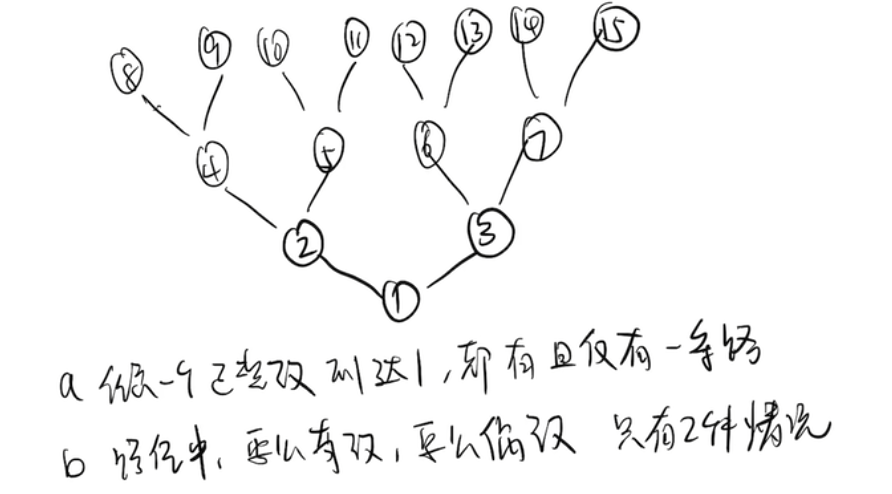 8 9 10 11 12 13 14 15
4 5 6 7
2 3
1
a 任意一个正整数到达1,都有且仅有一条路
b 路径中,要么奇数,要么偶数 只有2种情况